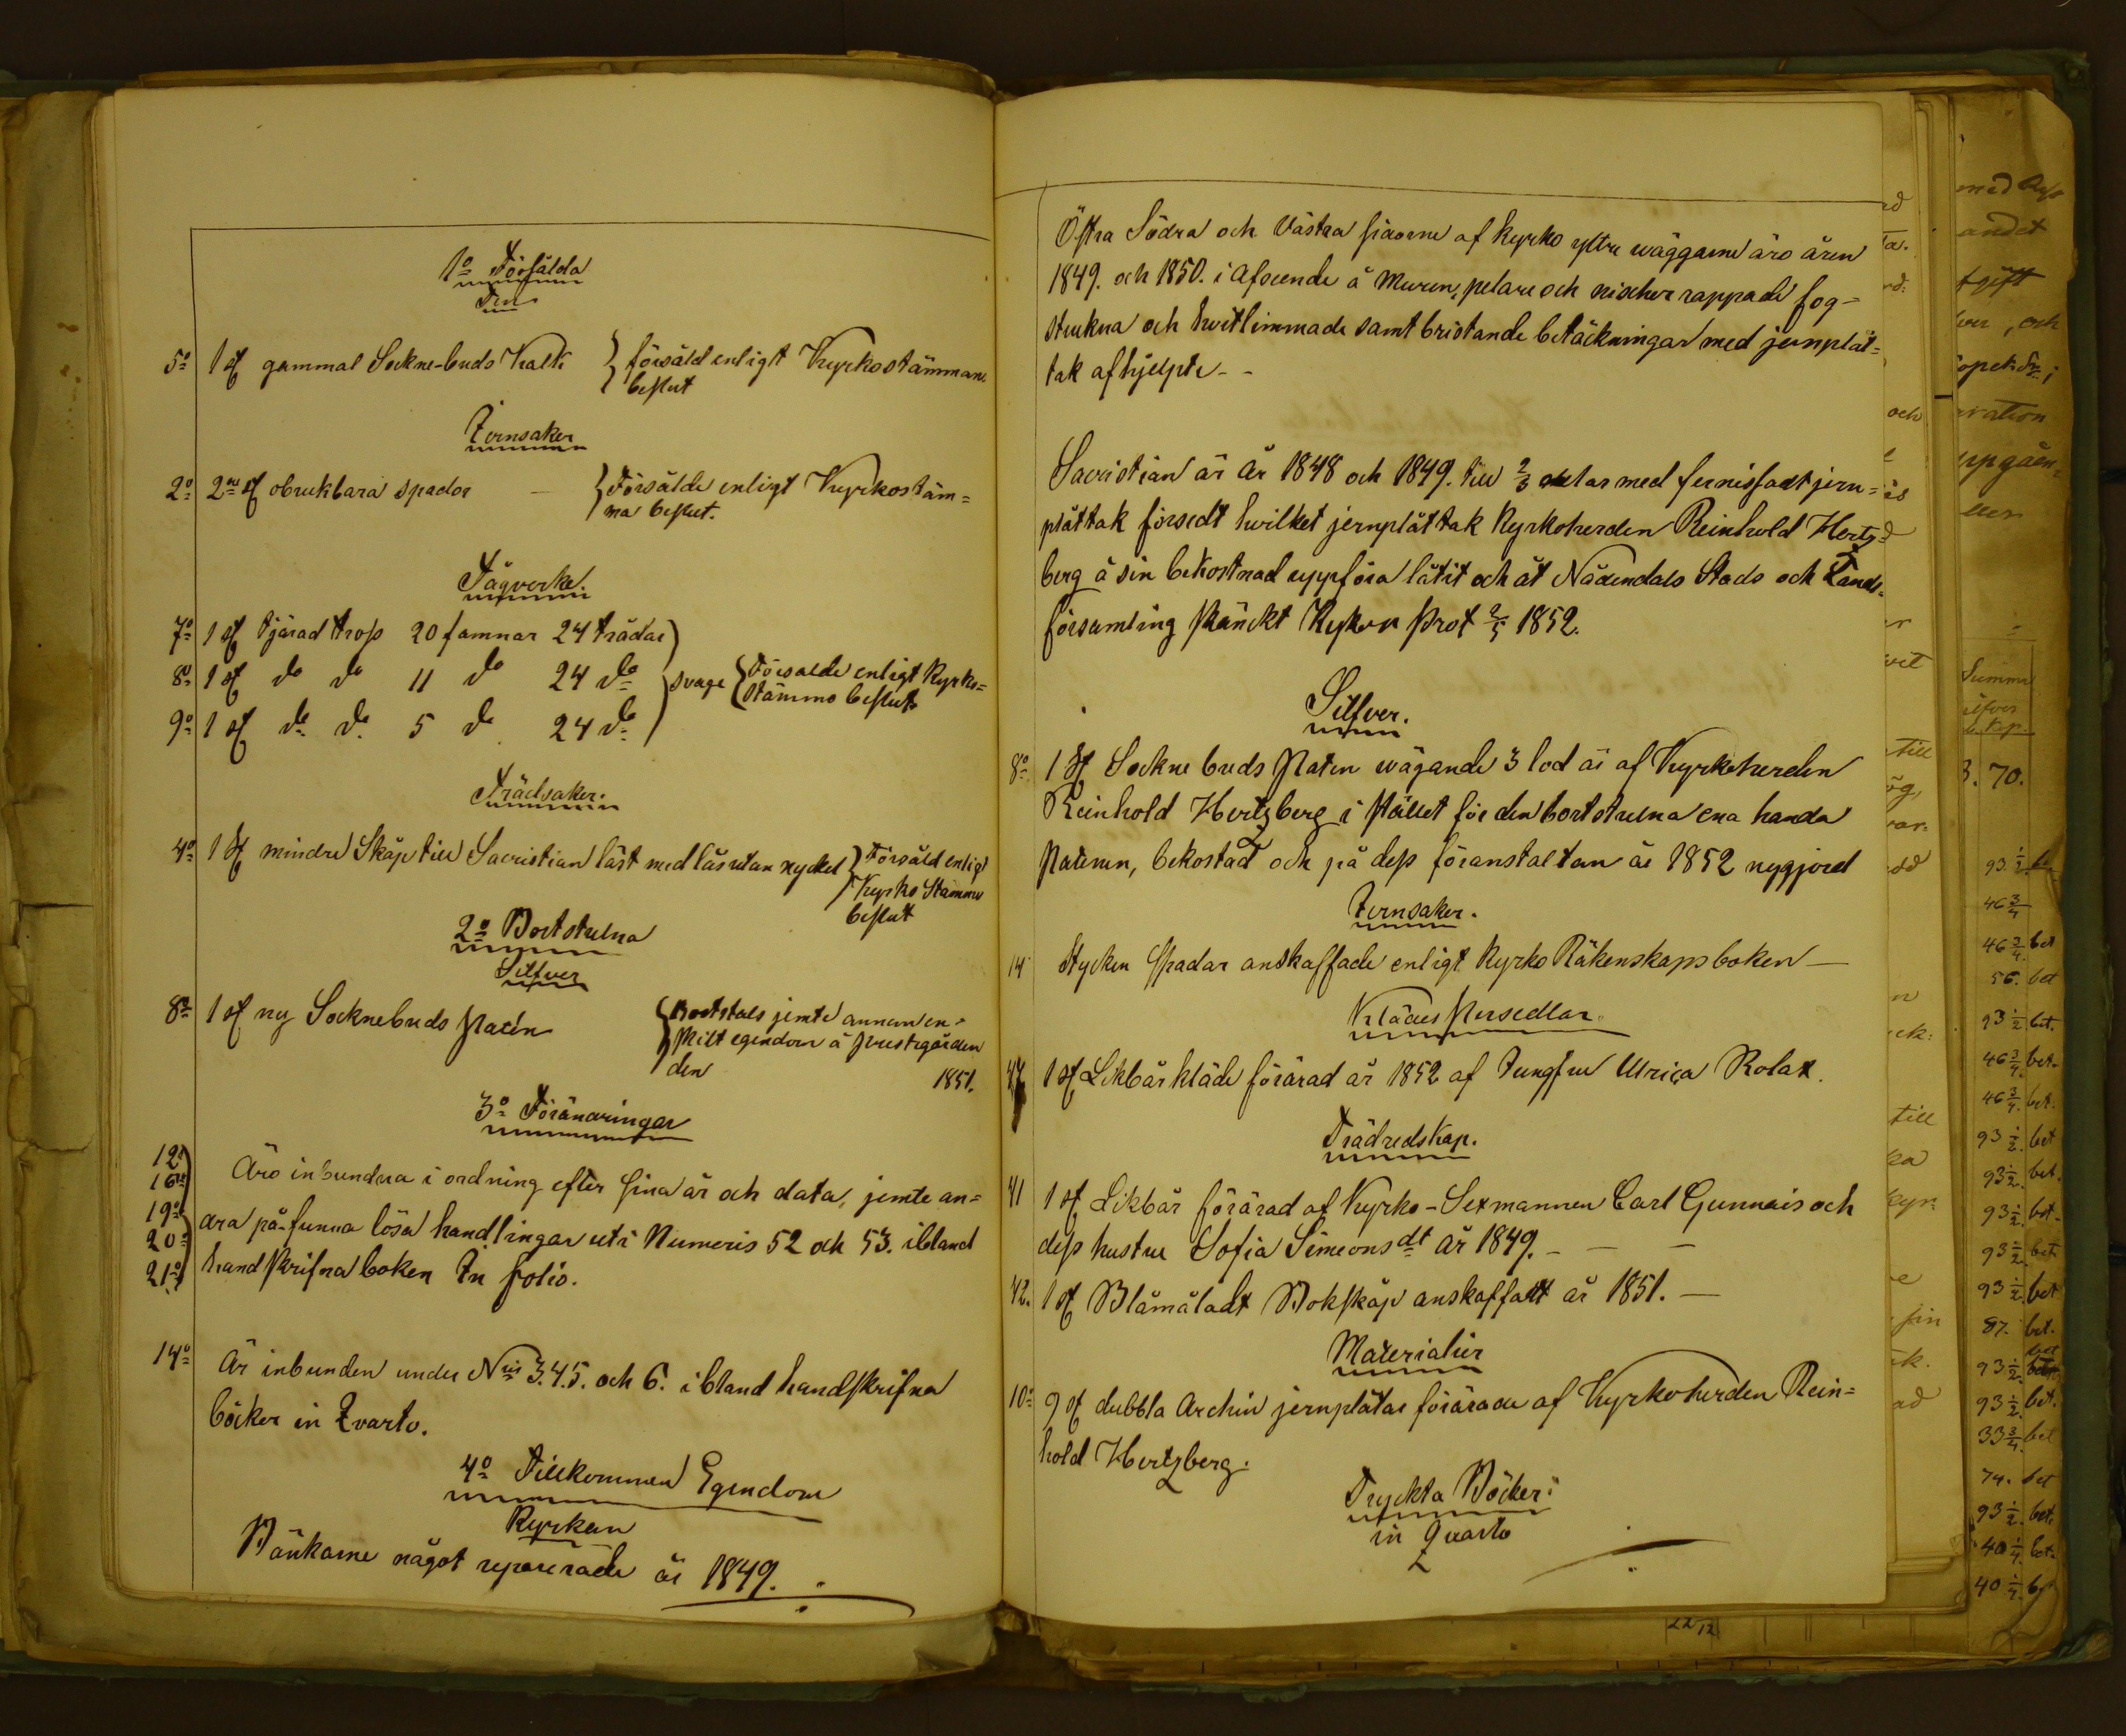 1:o Försålda
Ten
5:o 1 st gammal Sockne-buds Kalk } försåld enligt Kyrkostämmans
beslut
Jernsaker
2:o 2:ne st obrukbara spador — } Försålde enligt Kyrkostäm=
ma beslut.
Tågverke.
7:o 1 st tjärad tross 20 famnar 24 trådar
8:o 1 st d:o d:o 11 d:o 24 d:o } svage { Försålde enligt Kyrko=
stämmo beslut
9:o 1 st d:o d:o 5 d:o 24 d:o
Trädsaker.
4:o 1 st mindre Skåp till Sacristian låst med lås utan nyckel } Försåld enligt
Kyrko Stämmo
beslut
2:o Bortstulna
Silfver
8:o 1 st ny Socknebuds Patén { Bortstals jemte annan en=
skilt egendom å prestegården
den 1851.
3:o Förändringar
12:o
16:o
19:o
20:o
21:o
Äro inbundna i ordning efter sina år och data, jemte an=
dra på-funna lösa handlingar uti Numeris 52 och 53. ibland
handskrifna boken In folio.
14:o Är inbunden under N:ris 3. 4. 5. och 6. ibland handskrifna
böcker in Qvarto.
4:o Tillkommen Egendom
Kyrkan
Bänkarne något reparerade år 1849.
Östra Södra och Västra sidorne af kyrko yttre wäggarne äro åren
1849. och 1850. i afseende å Muren, pelare och nischer rappade fog=
strukna och hvitlimmade samt bristande betäckningar med jernplåt=
tak afhjelpte - -
Sacristian är år 1848 och 1849. till 2/3 delar med fernissadt jern=
plåttak försedt hvilket jernplåttak Kyrkoherden Reinhold Hertz=
berg å sin bekostnad uppföra låtit och åt Nådendals Stads och Lands=
församling skänckt Prot 2/5 1852.
Silfver.
8:o 1 st Sockne buds Paten wägande 3 lod är af Kyrkoherden
Reinhold Hertzberg i stället för den bortstulna ena handa
Patenen, bekostad och på dess föranstaltan år 1852 nygjord
Jernsaker.
14 Stycken Spadar anskaffade enligt Kyrko Räkenskapsboken —
Klädes Persedlar.
1 st Likbårkläde förärad år 1852 af Jungfru Ulrica Rolax.
Trädredskap.
41 1 st Likbår förärad af Kyrko-Sexmannen Carl Gunnais och
dess hustru Sofia Simeons dt år 1849. - — —
42. 1 st Blåmåladt Bokskåp anskaffadt år 1851. —
Materialier
10:o 9 st dubbla Archin jernplåtar förärade af Kyrkoherden Rein=
hold Hertzberg.
Tryckta Böcker
in Quarto
andet
och
Summa
3. 70.
46 3/4
46 3/4 bet
56. bet
93 1/2 bet.
46 3/4 bet.
46 3/4 bet.
93 1/2 bet
93 1/2 bet.
93 1/2 bet.
93 1/2 bet
93 1/2 bet
87. bet.
93 1/2 bet
93 1/2 bet.
33 3/4 bet
74. bet
93 1/2 bet.
40 1/4 bet.
40 1/4